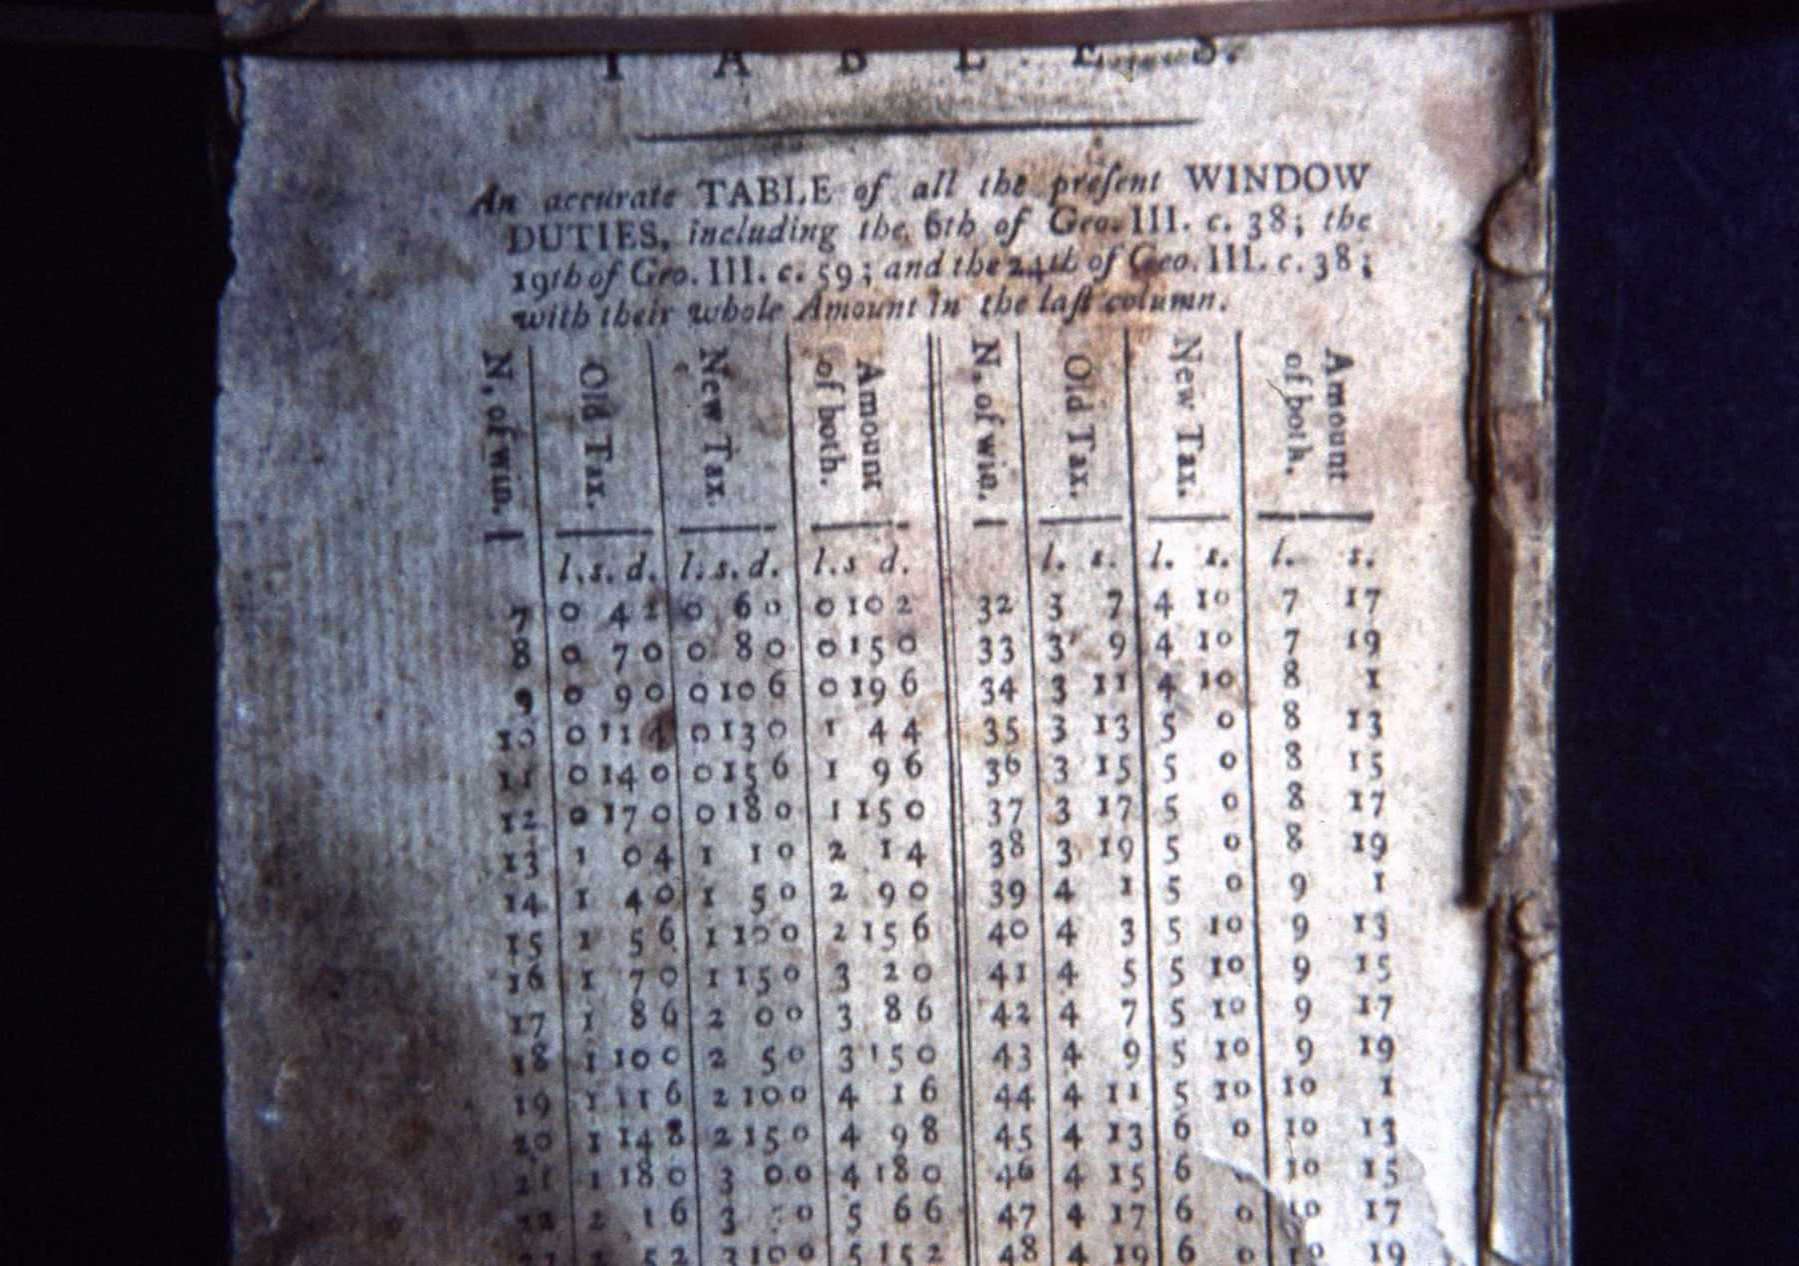 TABLES.
An accurate TABLE of all the preſent WINDOW
DUTIES, including the 6th of Geo. III. c. 38; the
19th of Geo. III. c. 59; and the 24th of Geo. III. c. 38;
with their whole Amount in the laſt column.
N. of win. Old Tax. New Tax. Amount of both. N. of win. Old Tax. New Tax. Amount of both.
l. s. d. l. s. d. l. s d. l. s. l. s. l. s.
7 0 4 2 0 6 0 0 10 2 32 3 7 4 10 7 17
8 0 7 0 0 8 0 0 15 0 33 3 9 4 10 7 19
9 0 9 0 0 10 6 0 19 6 34 3 11 4 10 8 1
10 0 11 4 0 13 0 1 4 4 35 3 13 5 0 8 13
11 0 14 0 0 15 6 1 9 6 36 3 15 5 0 8 15
12 0 17 0 0 18 0 1 15 0 37 3 17 5 0 8 17
13 1 0 4 1 1 0 2 1 4 38 3 19 5 0 8 19
14 1 4 0 1 5 0 2 9 0 39 4 1 5 0 9 1
15 1 5 6 1 10 0 2 15 6 40 4 3 5 10 9 13
16 1 7 0 1 15 0 3 2 0 41 4 5 5 10 9 15
17 1 8 6 2 0 0 3 8 6 42 4 7 5 10 9 17
18 1 10 0 2 5 0 3 15 0 43 4 9 5 10 9 19
19 1 11 6 2 10 0 4 1 6 44 4 11 5 10 10 1
20 1 14 8 2 15 0 4 9 8 45 4 13 6 0 10 13
21 1 18 0 3 0 0 4 18 0 46 4 15 6 10 15
22 2 1 6 3 0 5 6 6 47 4 17 6 0 10 17
5 2 3 10 0 5 15 2 48 4 19 6 0 10 19